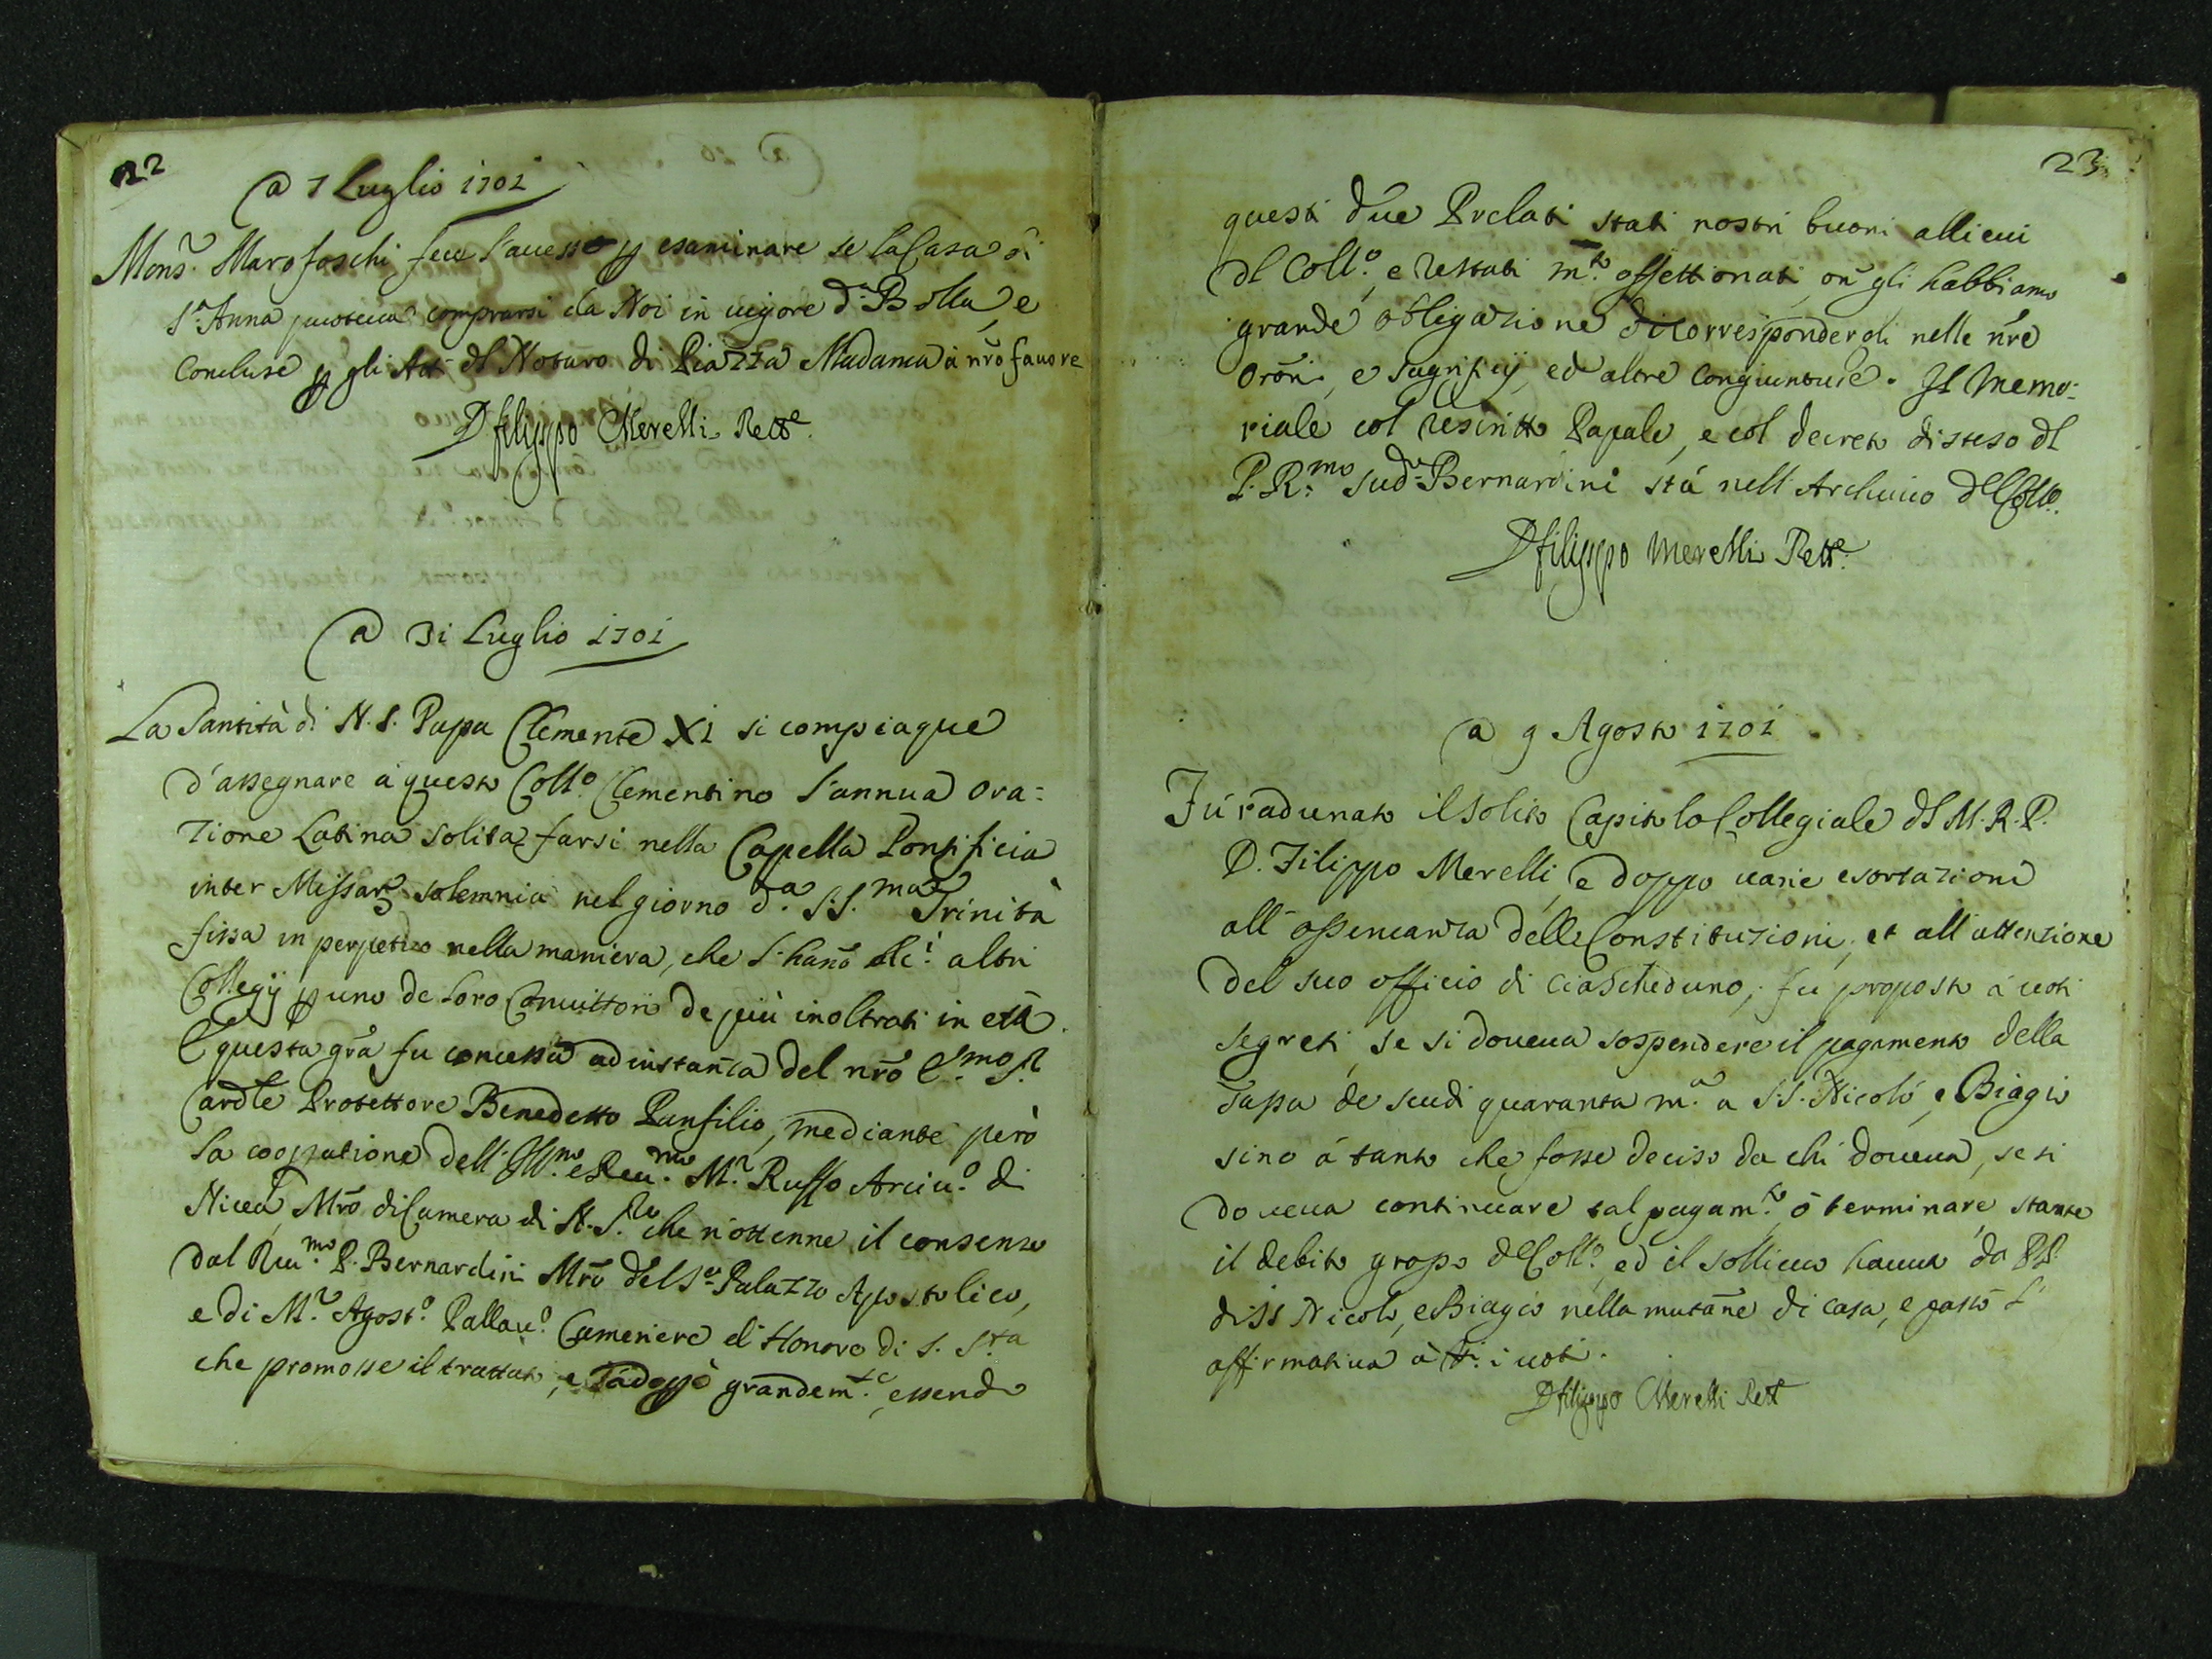 22
A 7 Luglio 1701
Mons.r Marofoschi fece l'accesso p esaminare se la Casa di
S.a Anna poteua comprarsi da Noi in uigore d.a Bolla, e
Concluse p gli Atti dl Notaro di Piazza Madama à nrõ fauore
D filippo Merelli Rett.e
A 31 Luglio 1701
La Santità di N. S. Papa Clemente XI si compiaque
d'assegnare à questo Coll.o Clementino l'annua Ora=
zione Latina solita farsi nella Capella Pontificia
inter Missar solemnia nel giorno d.a S.S.ma Trinità
fissa in perpetuo nella maniera, che l'hanõ altri
Collegij p uno de loro Conuittori de più inoltrati in età.
E questa grã fu concessa ad instanza del nrõ E.mo S.r
Cardle Protettore Benedetto Panfilio, mediante però
la cooperatione dell'Ill.mo e Reu.mo M.r Ruffo Arciu.o di
Nicea, Mrõ di Camera di N. S.re che n'ottenne il consenso
dal Reu.mo P. Bernardini Mrõ del S.o Palazzo Apostolico,
e di M.r Agost.o Pallau.o Cameriere d'Honore di S. S.ta
che promosse il trattato, e s'adoprò grandem.te, essendo
23
questi due Prelati stati nostri buoni allieui
dl Coll.o, e restati m.to affettionati, onde gli habbiamo
grande obligazione di corrisponderli nelle nrẽ
Orõni, e sagrificij, ed altre congiunture. Il Memo=
riale col rescritto Papale, e col decreto disteso dl
P. R.mo sud.o Bernardini stà nell'Archiuio dl Coll.o
D filippo Merelli Rett.e
A 9 Agosto 1701
Fù radunato il solito Capitolo Collegiale dl M. R. P.
D. Filippo Merelli, e doppo uarie esortazioni
all'osseruanza delle Constituzioni, et all'attenzione
del suo officio di ciascheduno, fu proposto à uoti
segreti, se si doueua sospendere il pagamento della
Tassa de scudi quaranta m.a a S.S. Nicolò, e Biagio
sino à tanto che fosse deciso da chi doueua, se si
doueua continuare tal pagam.to, ò terminare, stante
il debito grosso dl Coll.o, ed il sollieuo hauuto da PP.
di SS Nicolò, e Biagio nella mutãne di casa, e passò l'
affirmatiua à i uoti.
D filippo Merelli Rett